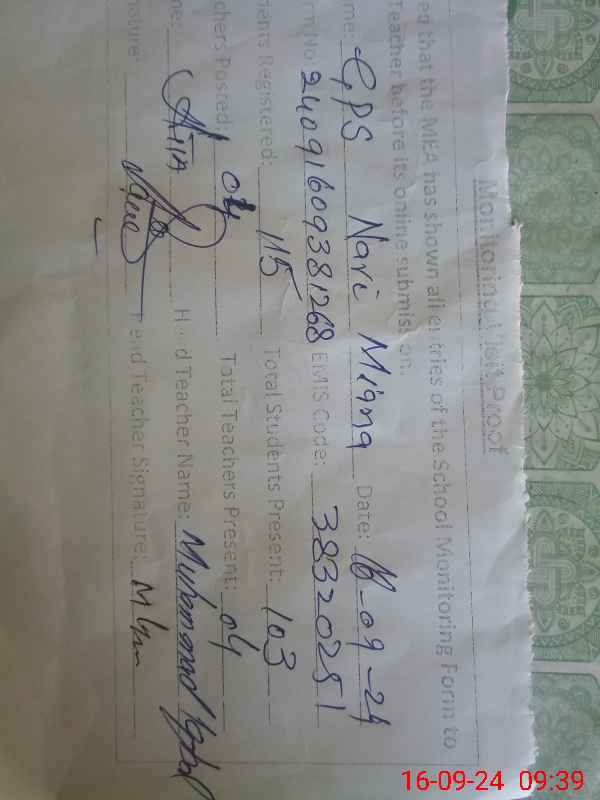 Monitoring Visit Proof
that the MEA has shown all entries of the School Monitoring Form to
Teacher before its online submission.
me: GPS Navi Miana Date: 16-09-24
rm No: 24091609381268 EMIS Code: 38320251
dents Registered: 115 Total Students Present: 103
chers Posted: 04 Total Teachers Present: 04
me: Head Teacher Name: Muhammad Iqbal
nature: Head Teacher Signature:
16-09-24 09:39